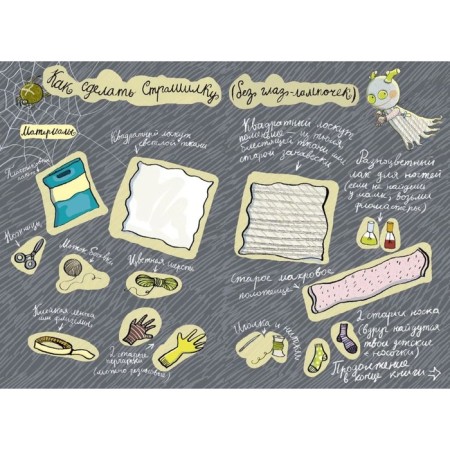 Как сделать Страшилку
(без глаз-лампочек)
Материалы
Квадратный лоскут
светлой ткани
Ножницы
Моток
Цветная шерсть
2 старые
перчатки
(можно резиновые)
Квадратный лоскут
блестящей ткани или
старой занавески
Разноцветный
лак для ногтей
(если не найдёшь
у мамы, возьми
фломастеры)
Старое махровое
полотенце
Иголка и нитки
2 старых носка
(вдруг найдутся
твои детские
носочки)
Продолжение
в конце книги →